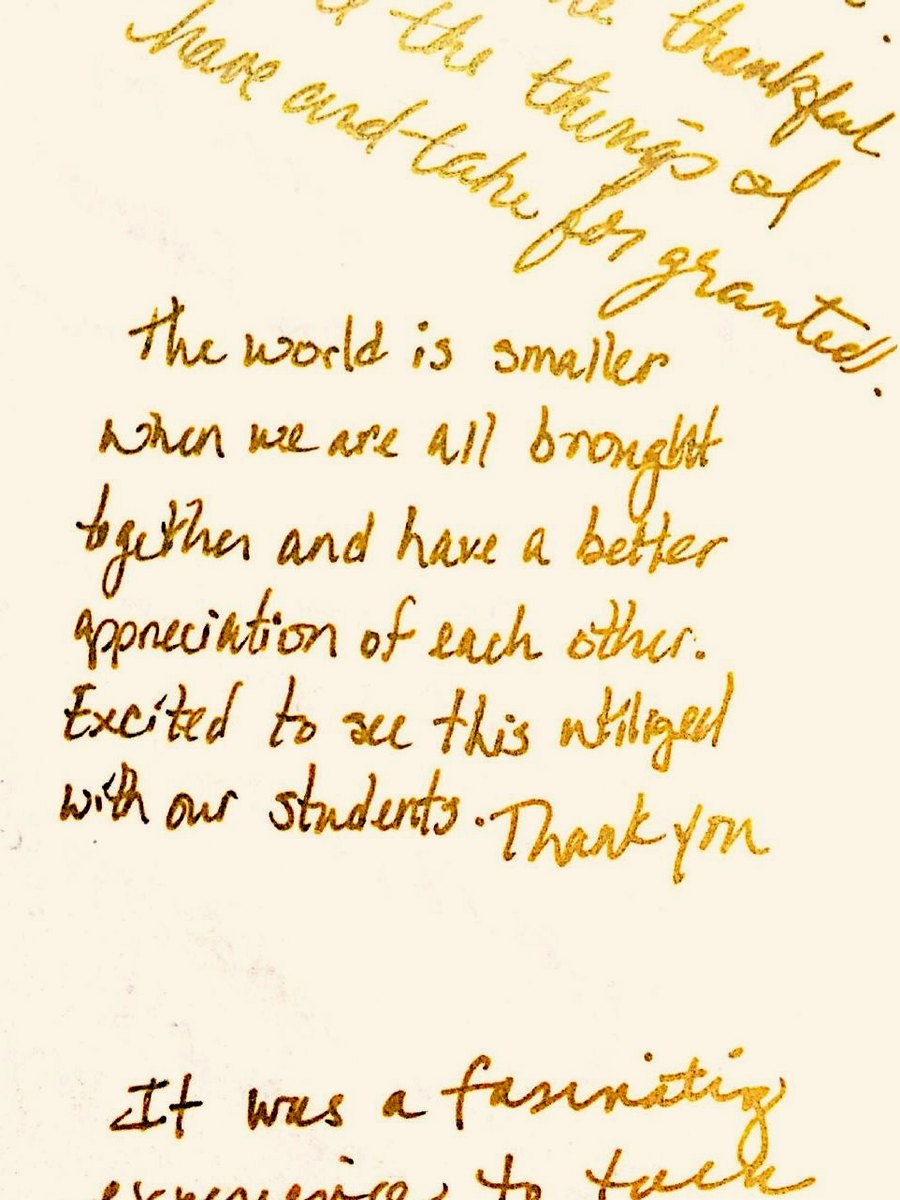 thankful
the things I
have and take for granted.
The world is smaller
when we are all brought
together and have a better
appreciation of each other.
Excited to see this utilized
with our students. Thank you
It was a fascinatig
experience to talk